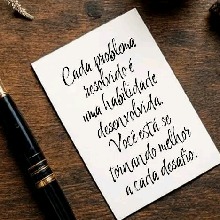 Cada problema
resolvido é
uma habilidade
desenvolvida.
Você está se
tornando melhor
a cada desafio.